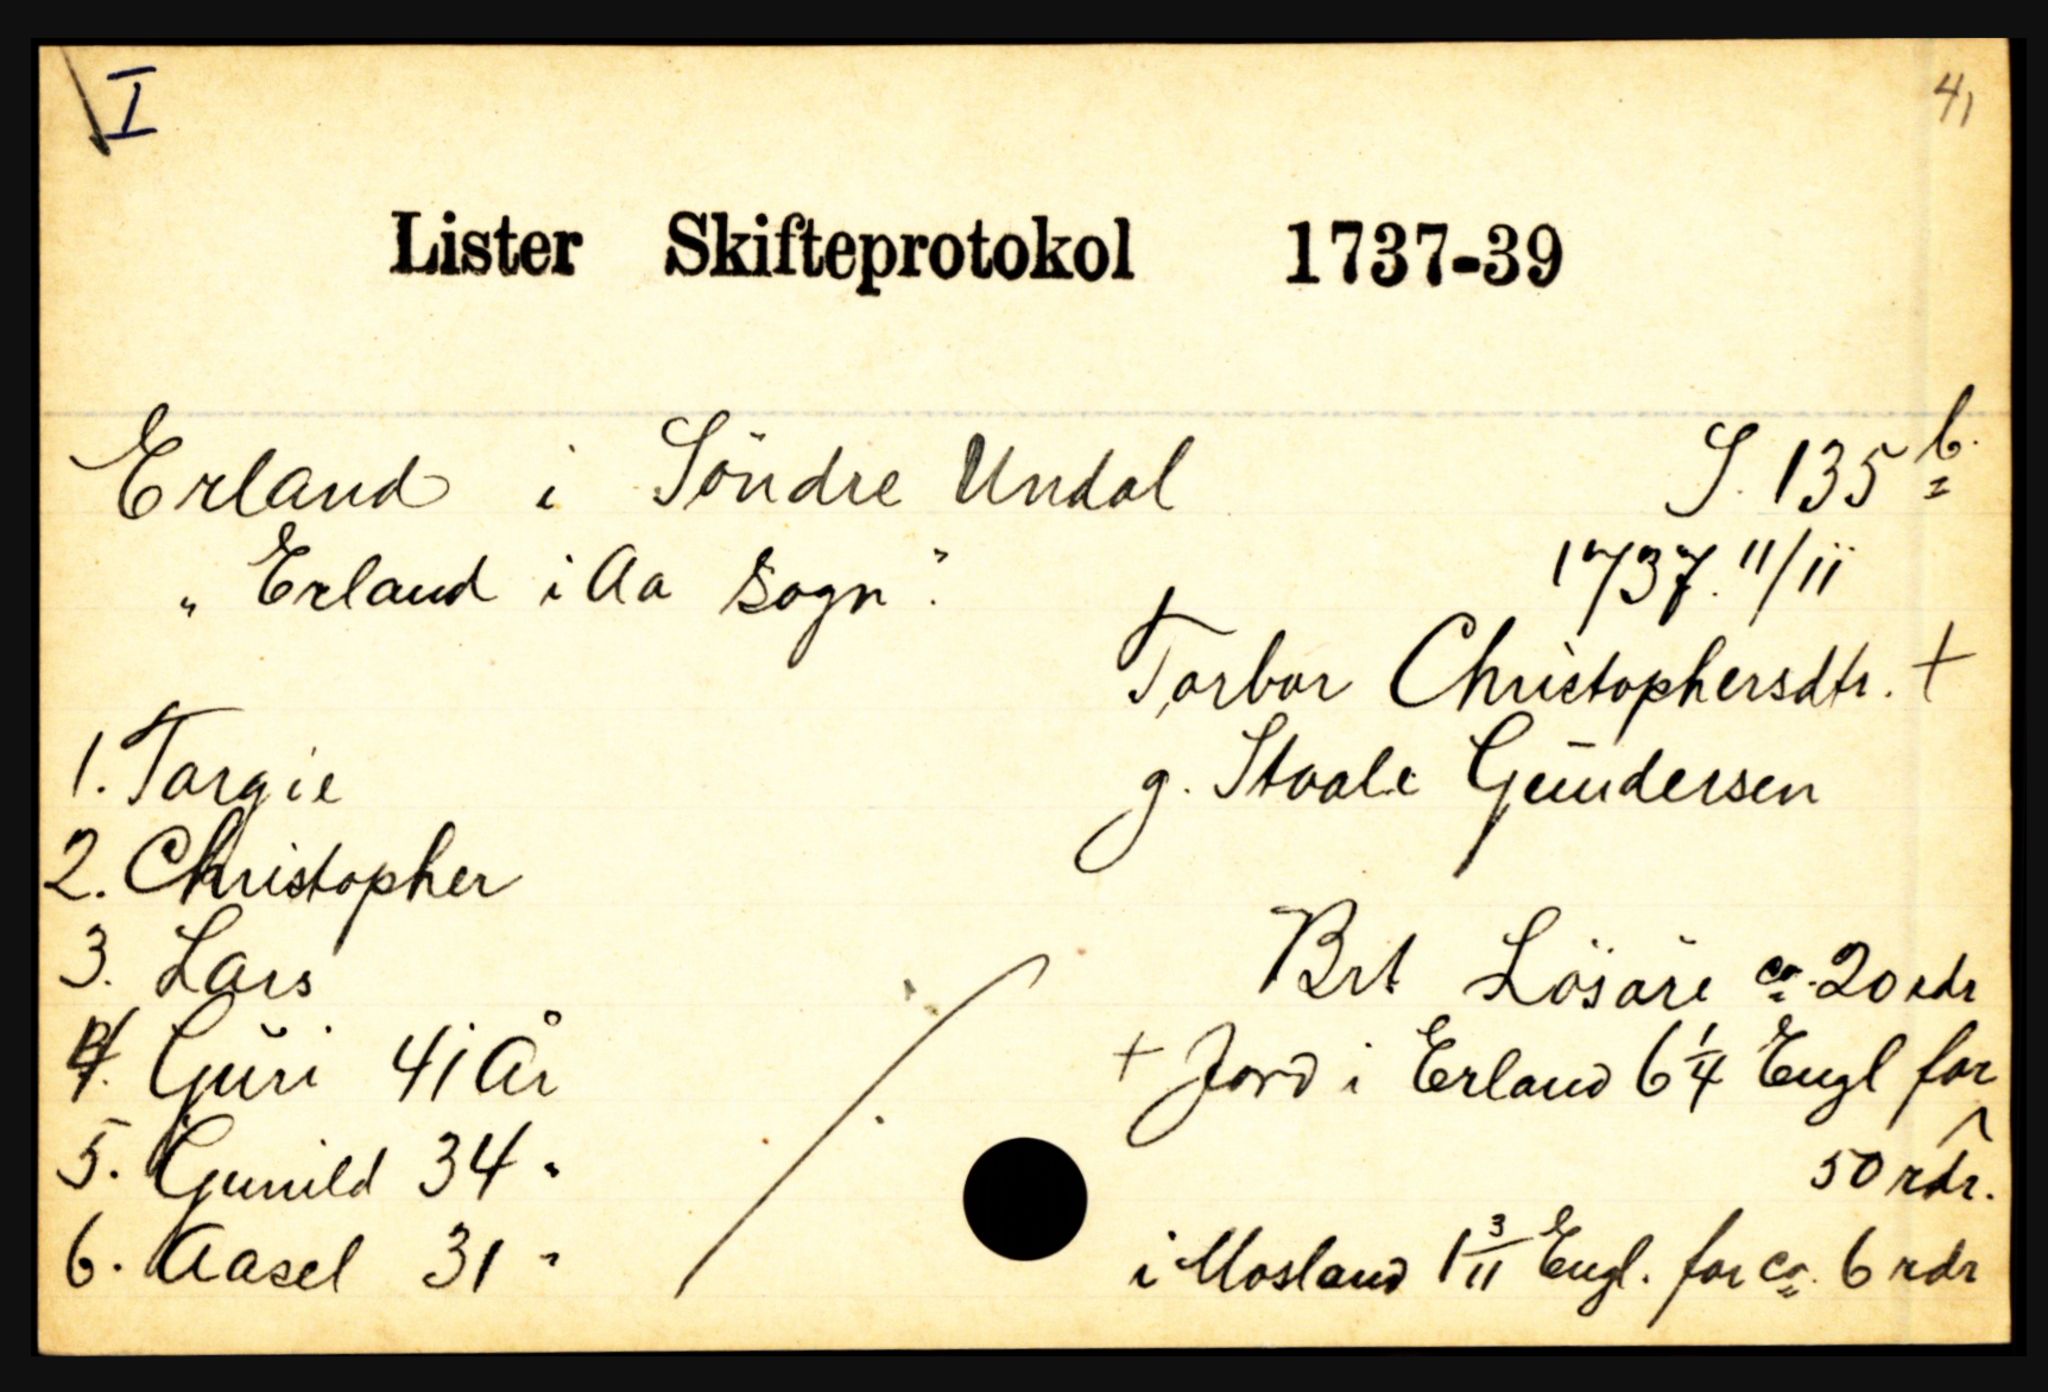 I
41
Lister Skifteprotokol 1737-39
Erland i Söndre Undal S. 135 b.
„Erland i Aa Sogn". 1737. 11/11
Torbor Christophersdtr. +
1. Torgie g. Stoale Gundersen
2. Christopher
3. Lars Brt Lösöre ca. 20 rdr
4. Guri 41 År + Jord i Erland 6 1/4 Engl for
5. Gunild 34 " 50 rdr.
6. Aasel 31 " i Mosland 1 3/11 Engl. for ca. 6 rdr